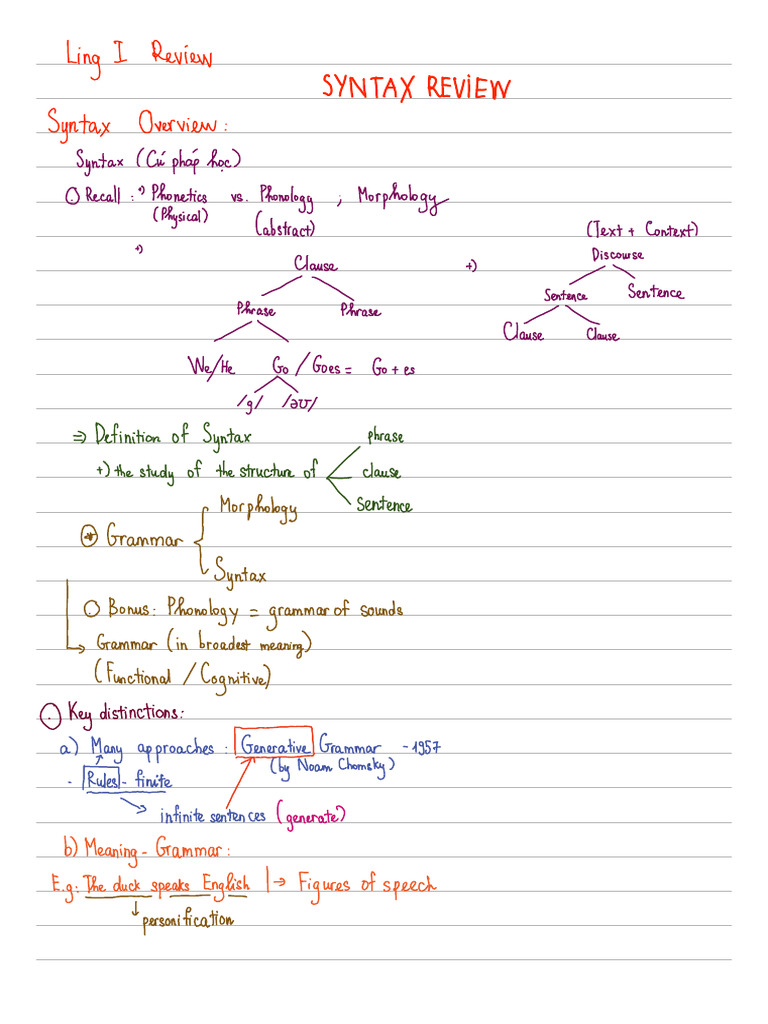 Ling I Review
SYNTAX REVIEW
Syntax Overview:
Syntax (Cú pháp học)
⊙ Recall: +) Phonetics vs. Phonology ; Morphology
(Physical) (abstract)
(Text + Context)
+) Clause +) Discourse
Sentence Sentence
Phrase Phrase
Clause Clause
We/He Go / Goes = Go + es
/g/ /əʊ/
⇒ Definition of Syntax
phrase
+) the study of the structure of clause
Sentence
Morphology
⊛ Grammar
Syntax
○ Bonus: Phonology = grammar of sounds
→ Grammar (in broadest meaning)
(Functional / Cognitive)
⊙ Key distinctions:
a) Many approaches: Generative Grammar - 1957
(by Noam Chomsky)
- Rules - finite
→ infinite sentences (generate)
b) Meaning - Grammar:
E.g: The duck speaks English |→ Figures of speech
↓ personification